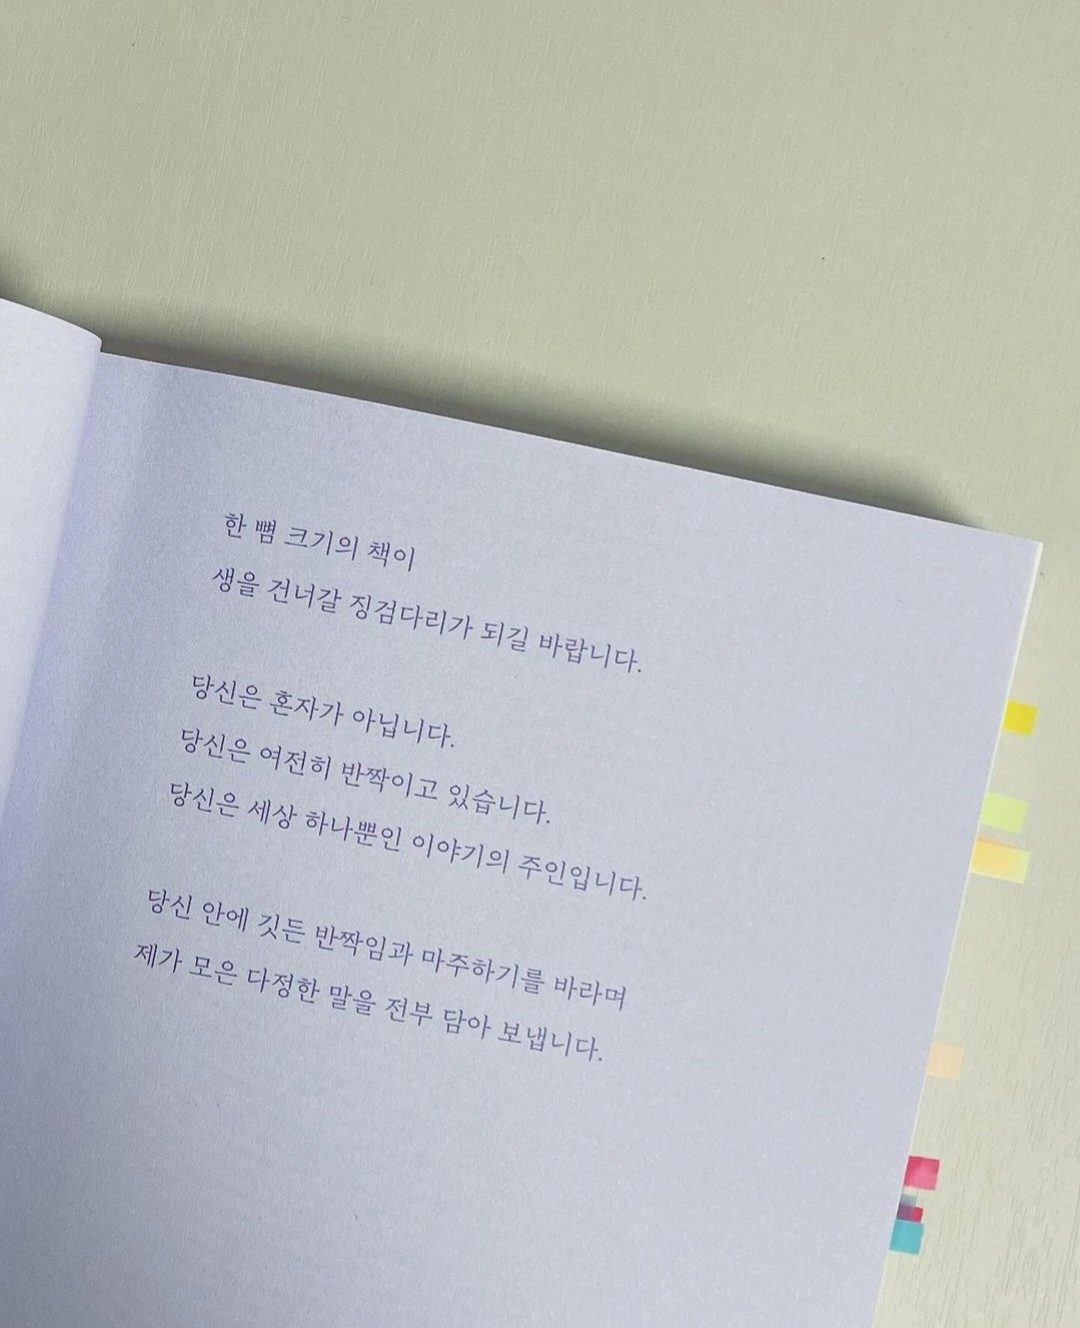 한 뼘 크기의 책이
생을 건너갈 징검다리가 되길 바랍니다.
당신은 혼자가 아닙니다.
당신은 여전히 반짝이고 있습니다.
당신은 세상 하나뿐인 이야기의 주인입니다.
당신 안에 깃든 반짝임과 마주하기를 바라며
제가 모은 다정한 말을 전부 담아 보냅니다.